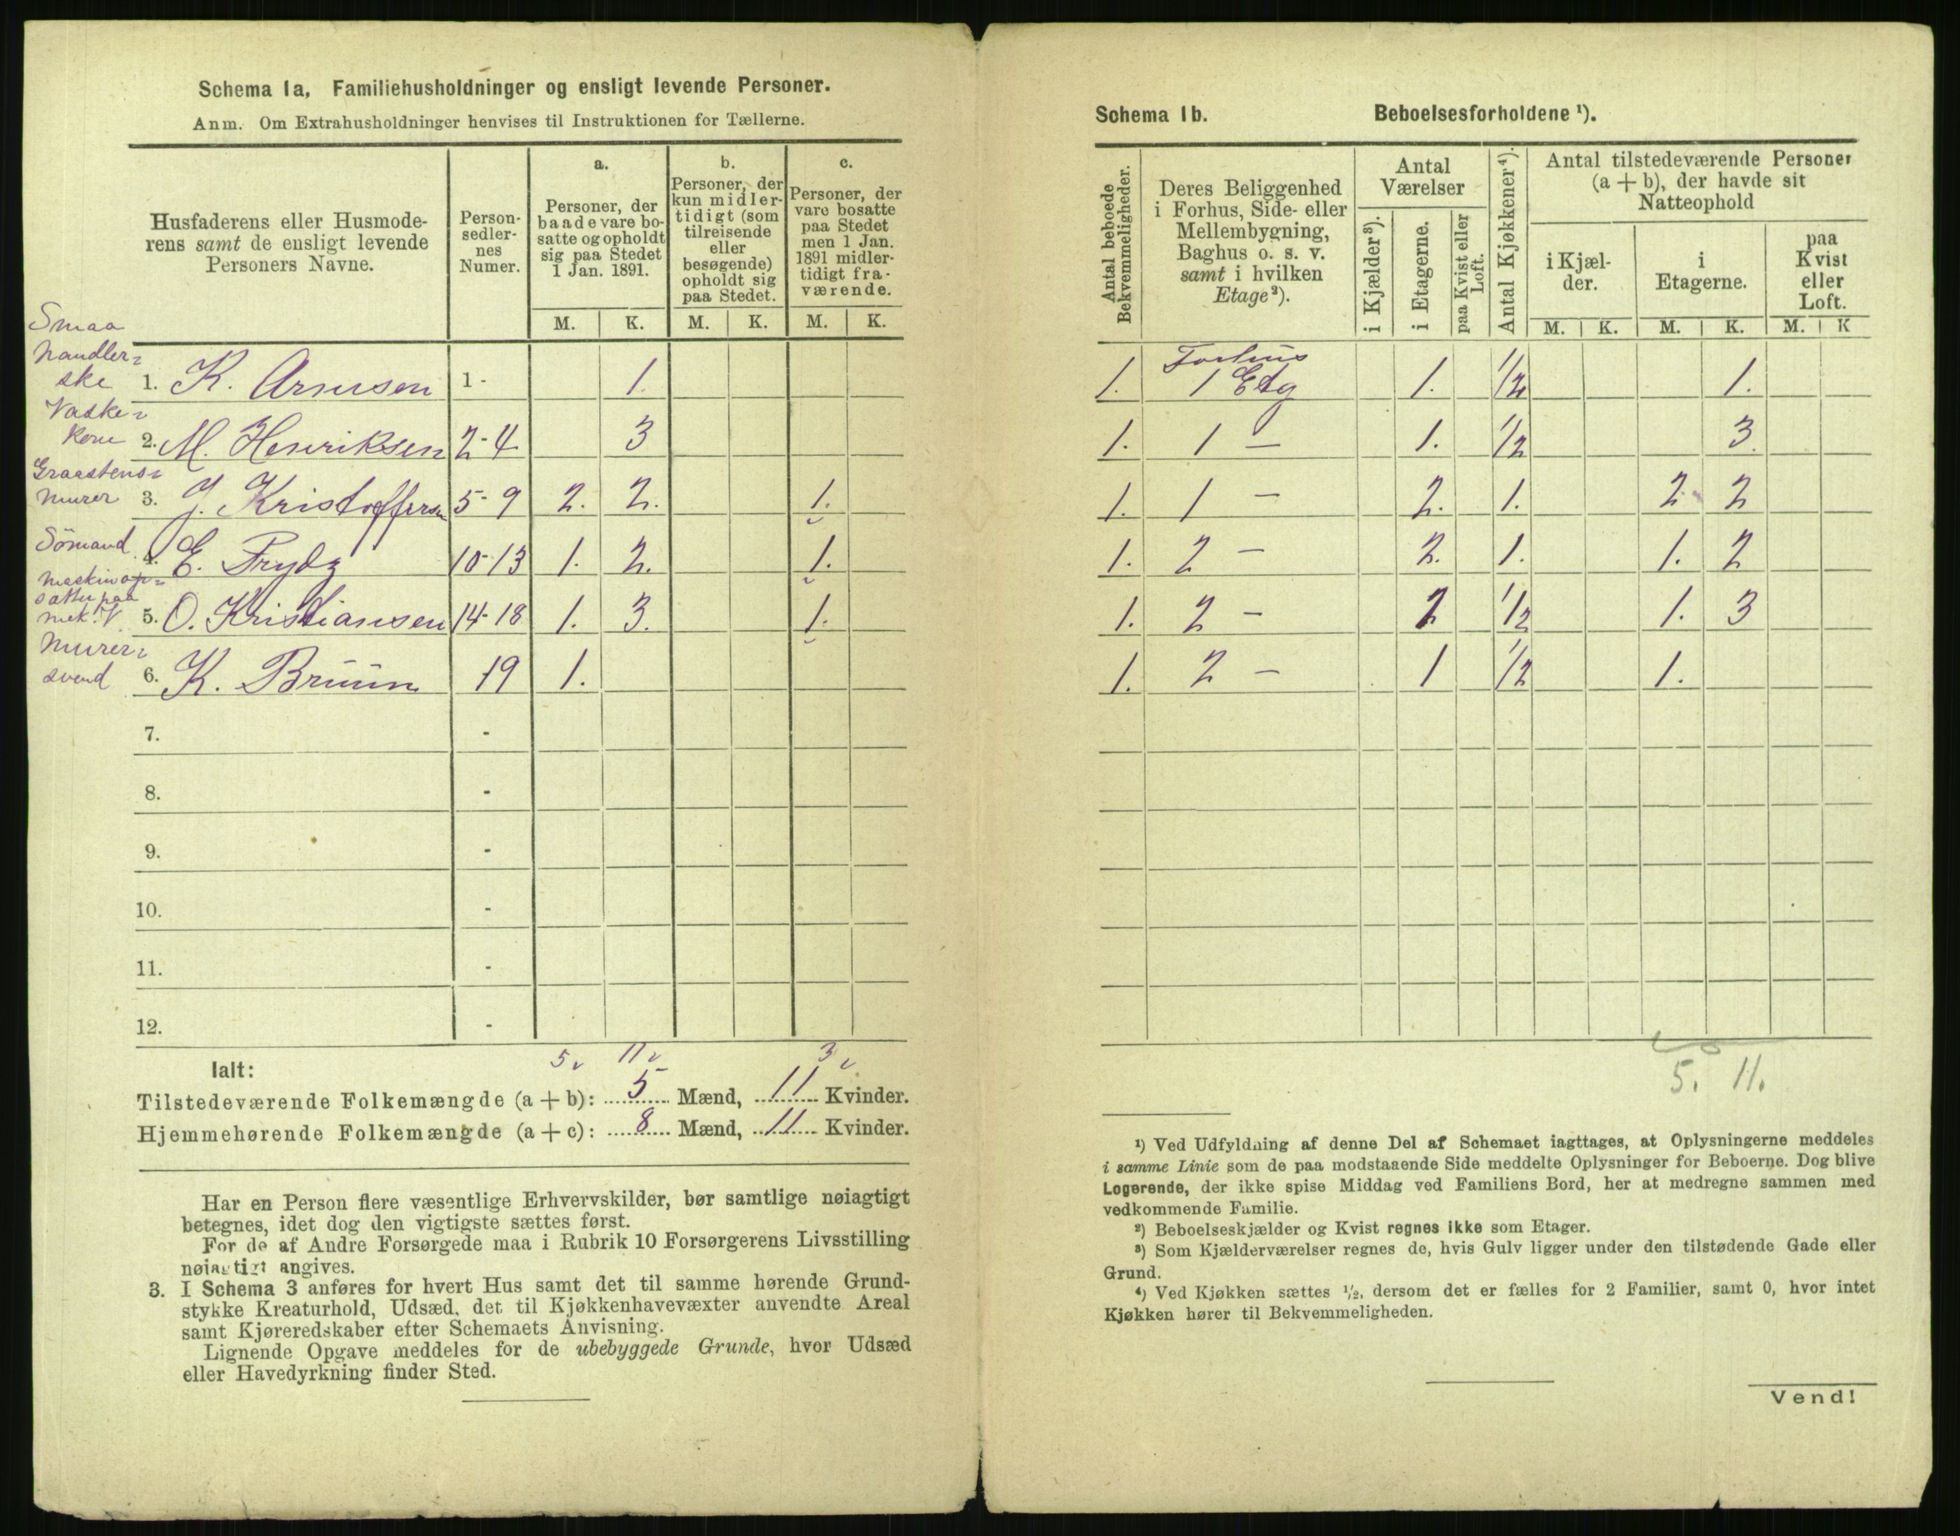 Schema 1a, Familiehusholdninger og ensligt levende Personer.
Anm. Om Extrahusholdninger henvises til Instruktionen for Tællerne.
Husfaderens eller Husmode-
rens samt de ensligt levende
Personers Navne.
Person-
sedler-
nes
Numer.
a.
Personer, der
baade vare bo-
satte og opholdt
sig paa Stedet
1 Jan. 1891.
b.
Personer, der
kun midler-
tidigt (som
tilreisende
eller
besøgende)
opholdt sig
paa Stedet.
c.
Personer, der
vare bosatte
paa Stedet
men 1 Jan.
1891 midler-
tidigt fra-
værende.
M. K. M. K. M. K.
Smaa
handler-
ske 1. K. Arnesen 1 - 1.
Vaske-
kone 2. M. Henriksen 2-4 3
Graastens-
murer 3. J. Kristoffersen 5-9 2. 2. 1.
Sömand 4. E. Prydz 10-13 1. 2. 1.
Maskinop-
sætter paa
mek. V. 5. O. Kristiansen 14-18 1. 3. 1.
Murer-
svend 6. K. Bruun 19 1.
7. -
8. -
9. -
10. -
11. -
12. -
5 11 3
Ialt:
Tilstedeværende Folkemængde (a + b): 5 Mænd, 11 Kvinder.
Hjemmehørende Folkemængde (a + c): 8 Mænd, 11 Kvinder.
Har en Person flere væsentlige Erhvervskilder, bør samtlige nøiagtigt
betegnes, idet dog den vigtigste sættes først.
For de af Andre Forsørgede maa i Rubrik 10 Forsørgerens Livsstilling
nøiagtigt angives.
3. I Schema 3 anføres for hvert Hus samt det til samme hørende Grund-
stykke Kreaturhold, Udsæd, det til Kjøkkenhavevæxter anvendte Areal
samt Kjøreredskaber efter Schemaets Anvisning.
Lignende Opgave meddeles for de ubebyggede Grunde, hvor Udsæd
eller Havedyrkning finder Sted.
Schema 1b. Beboelsesforholdene ¹).
Antal beboede
Bekvemmeligheder.
Deres Beliggenhed
i Forhus, Side- eller
Mellembygning,
Baghus o. s. v.
samt i hvilken
Etage²).
Antal
Værelser
i Kjælder³).
i Etagerne.
paa Kvist eller
Loft.
Antal Kjøkkener⁴).
Antal tilstedeværende Personer
(a + b), der havde sit
Natteophold
i Kjæl-
der.
i
Etagerne.
paa
Kvist
eller
Loft.
M. K. M. K. M. K
Forhus
1. 1 Etg 1. 1/2 1.
1. 1 - 1. 1/2 3.
1. 1 - 2. 1. 2 2
1. 2 - 2. 1. 1. 2
1. 2 - 2 1/2 1. 3
1. 2 - 1 1/2 1.
5. 11.
¹) Ved Udfyldning af denne Del af Schemaet iagttages, at Oplysningerne meddeles
i samme Linie som de paa modstaaende Side meddelte Oplysninger for Beboerne. Dog blive
Logerende, der ikke spise Middag ved Familiens Bord, her at medregne sammen med
vedkommende Familie.
²) Beboelseskjælder og Kvist regnes ikke som Etager.
³) Som Kjælderværelser regnes de, hvis Gulv ligger under den tilstødende Gade eller
Grund.
⁴) Ved Kjøkken sættes ½, dersom det er fælles for 2 Familier, samt 0, hvor intet
Kjøkken hører til Bekvemmeligheden.
Vend!